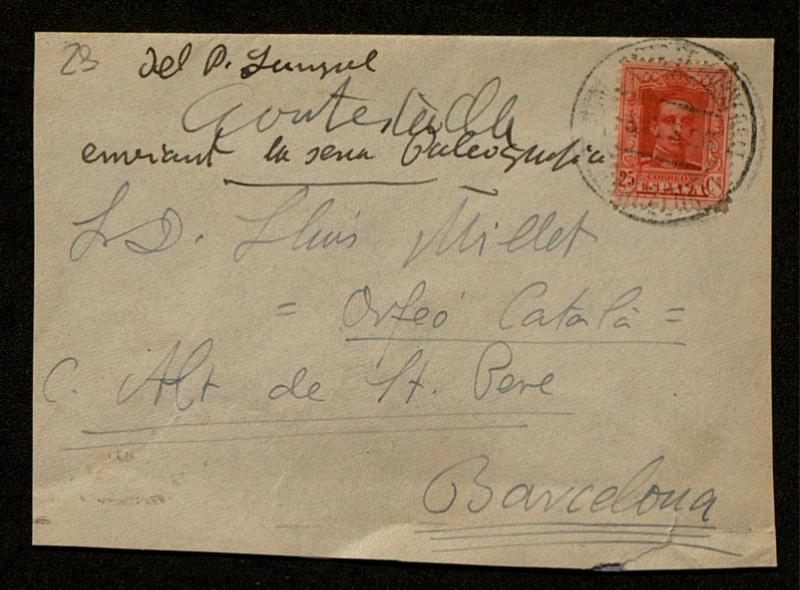 23 Del P. Sunyol
Contestada
enviant la seva Paleografia
CORREOS
25 ESPAÑA
Sr D. Lluis Millet
= Orfeó Català =
C. Alt de St. Pere
Barcelona